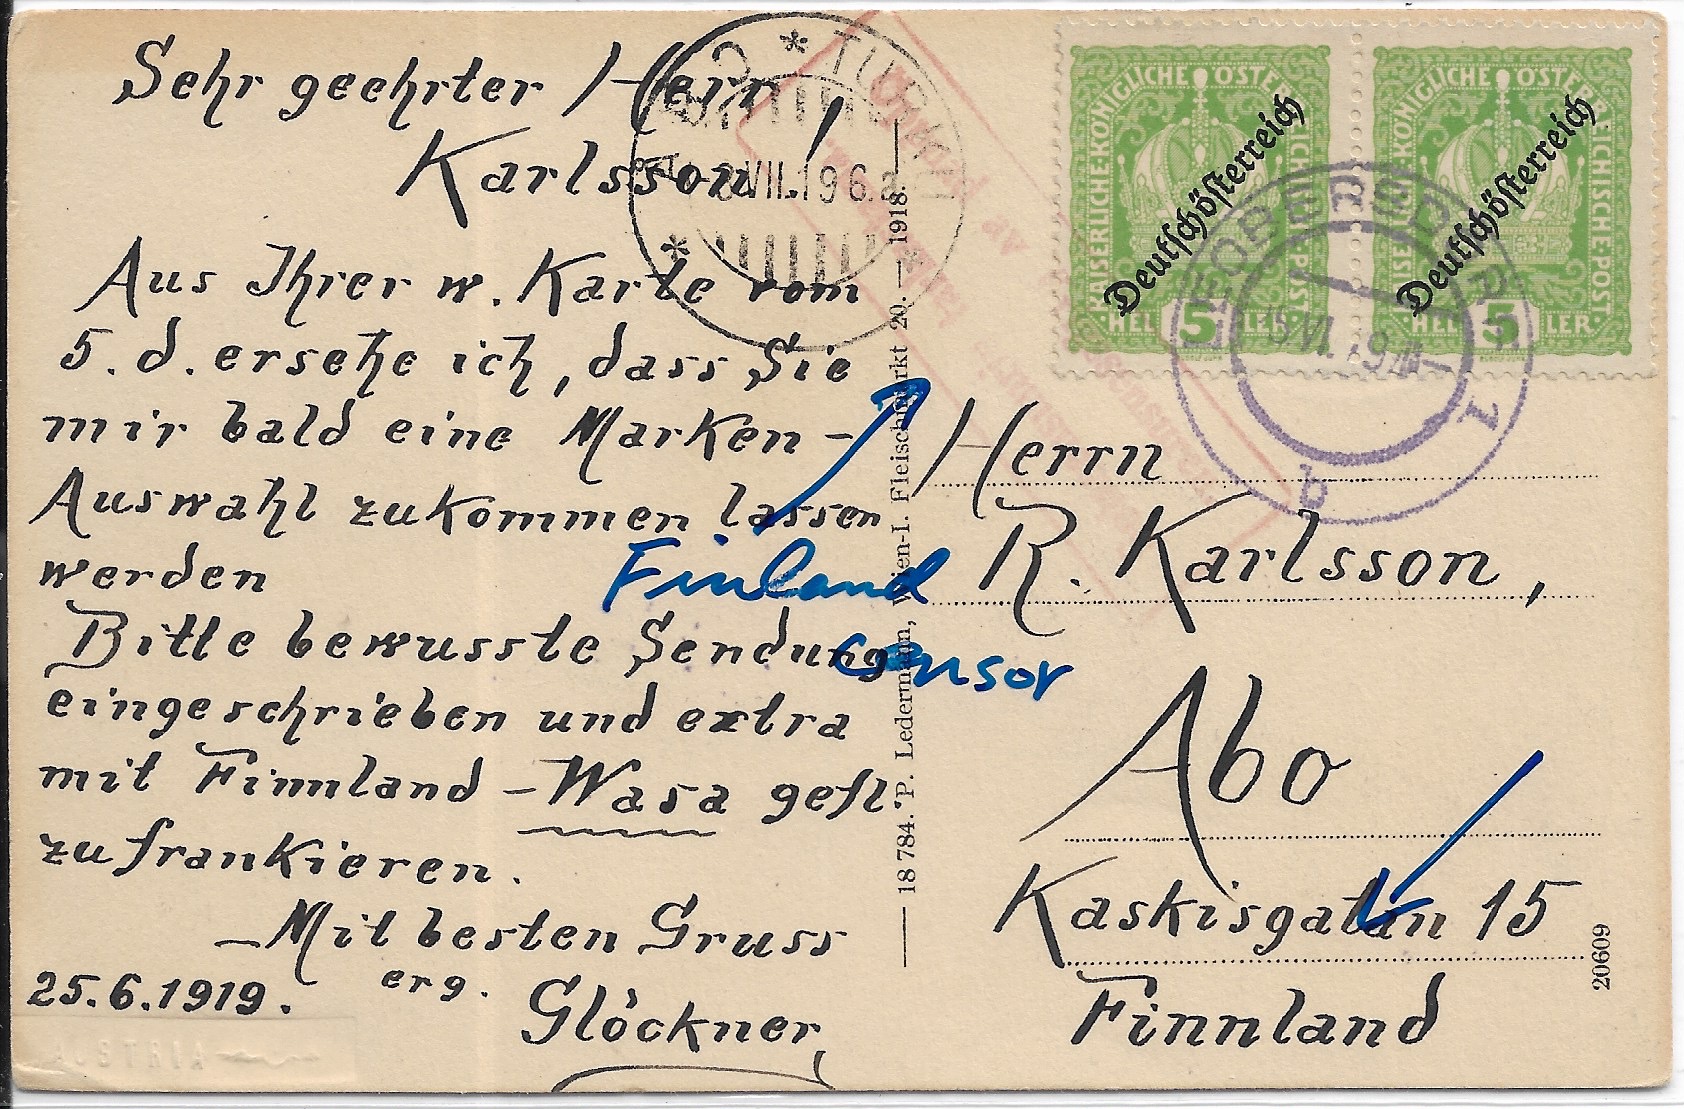 Sehr geehrter Herr
Karlsson!
Aus Ihrer w. Karte vom
5. d. ersehe ich, dass Sie
mir bald eine Marken-
Auswahl zukommen lassen
werden
Bitte bewusste Sendung
eingeschrieben und extra
mit Finnland - Wasa gefl.
zu frankieren.
- Mit besten Gruss
25.6.1919. erg.
Glöckner
Finland
censor
18 784. P. Ledermann, Wien-I. Fleischmarkt 20. — 1918.
TURKU
ÅBO
VII.19
KAISERLICHE-KÖNIGLICHE ÖSTERREICHISCHE POST
Deutschösterreich
5
HELLER
KAISERLICHE-KÖNIGLICHE ÖSTERREICHISCHE POST
Deutschösterreich
5
HELLER
VI. 19
1
b
Herrn
R. Karlsson,
Abo
Kaskisgatan 15
Finnland
20609